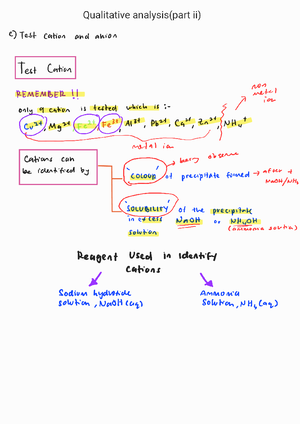 Qualitative analysis(part ii)
c) Test cation and anion
Test Cation
REMEMBER !!
only 9 cation is tested which is :-
non metal ion
Cu²⁺, Mg²⁺, Fe²⁺, Fe³⁺, Al³⁺, Pb²⁺, Ca²⁺, Zn²⁺, NH₄⁺
metal ion
Cations can
be identified by
→ bary observe
"COLOUR" of precipitate formed → after +
NaOH/NH₄
"SOLUBILITY" of the precipitate
in excess NaOH or NH₄OH
solution (ammonia solution)
Reagent Used in Identify
Cations
Sodium hydroxide
solution, NaOH(aq)
Ammonia
solution, NH₄(aq)